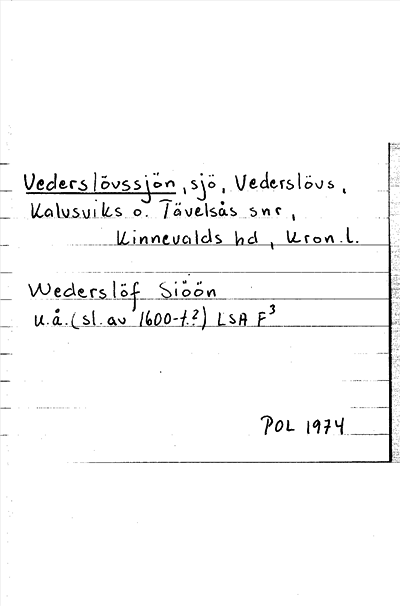 Vederslövssjön, sjö, Vederslövs,
Kalvsviks o. Tävelsås snr,
Kinnevalds hd, Kron. l.
Wederslöf Siöön
u.å. (sl. av 1600-t.?) LSA F³
POL 1974